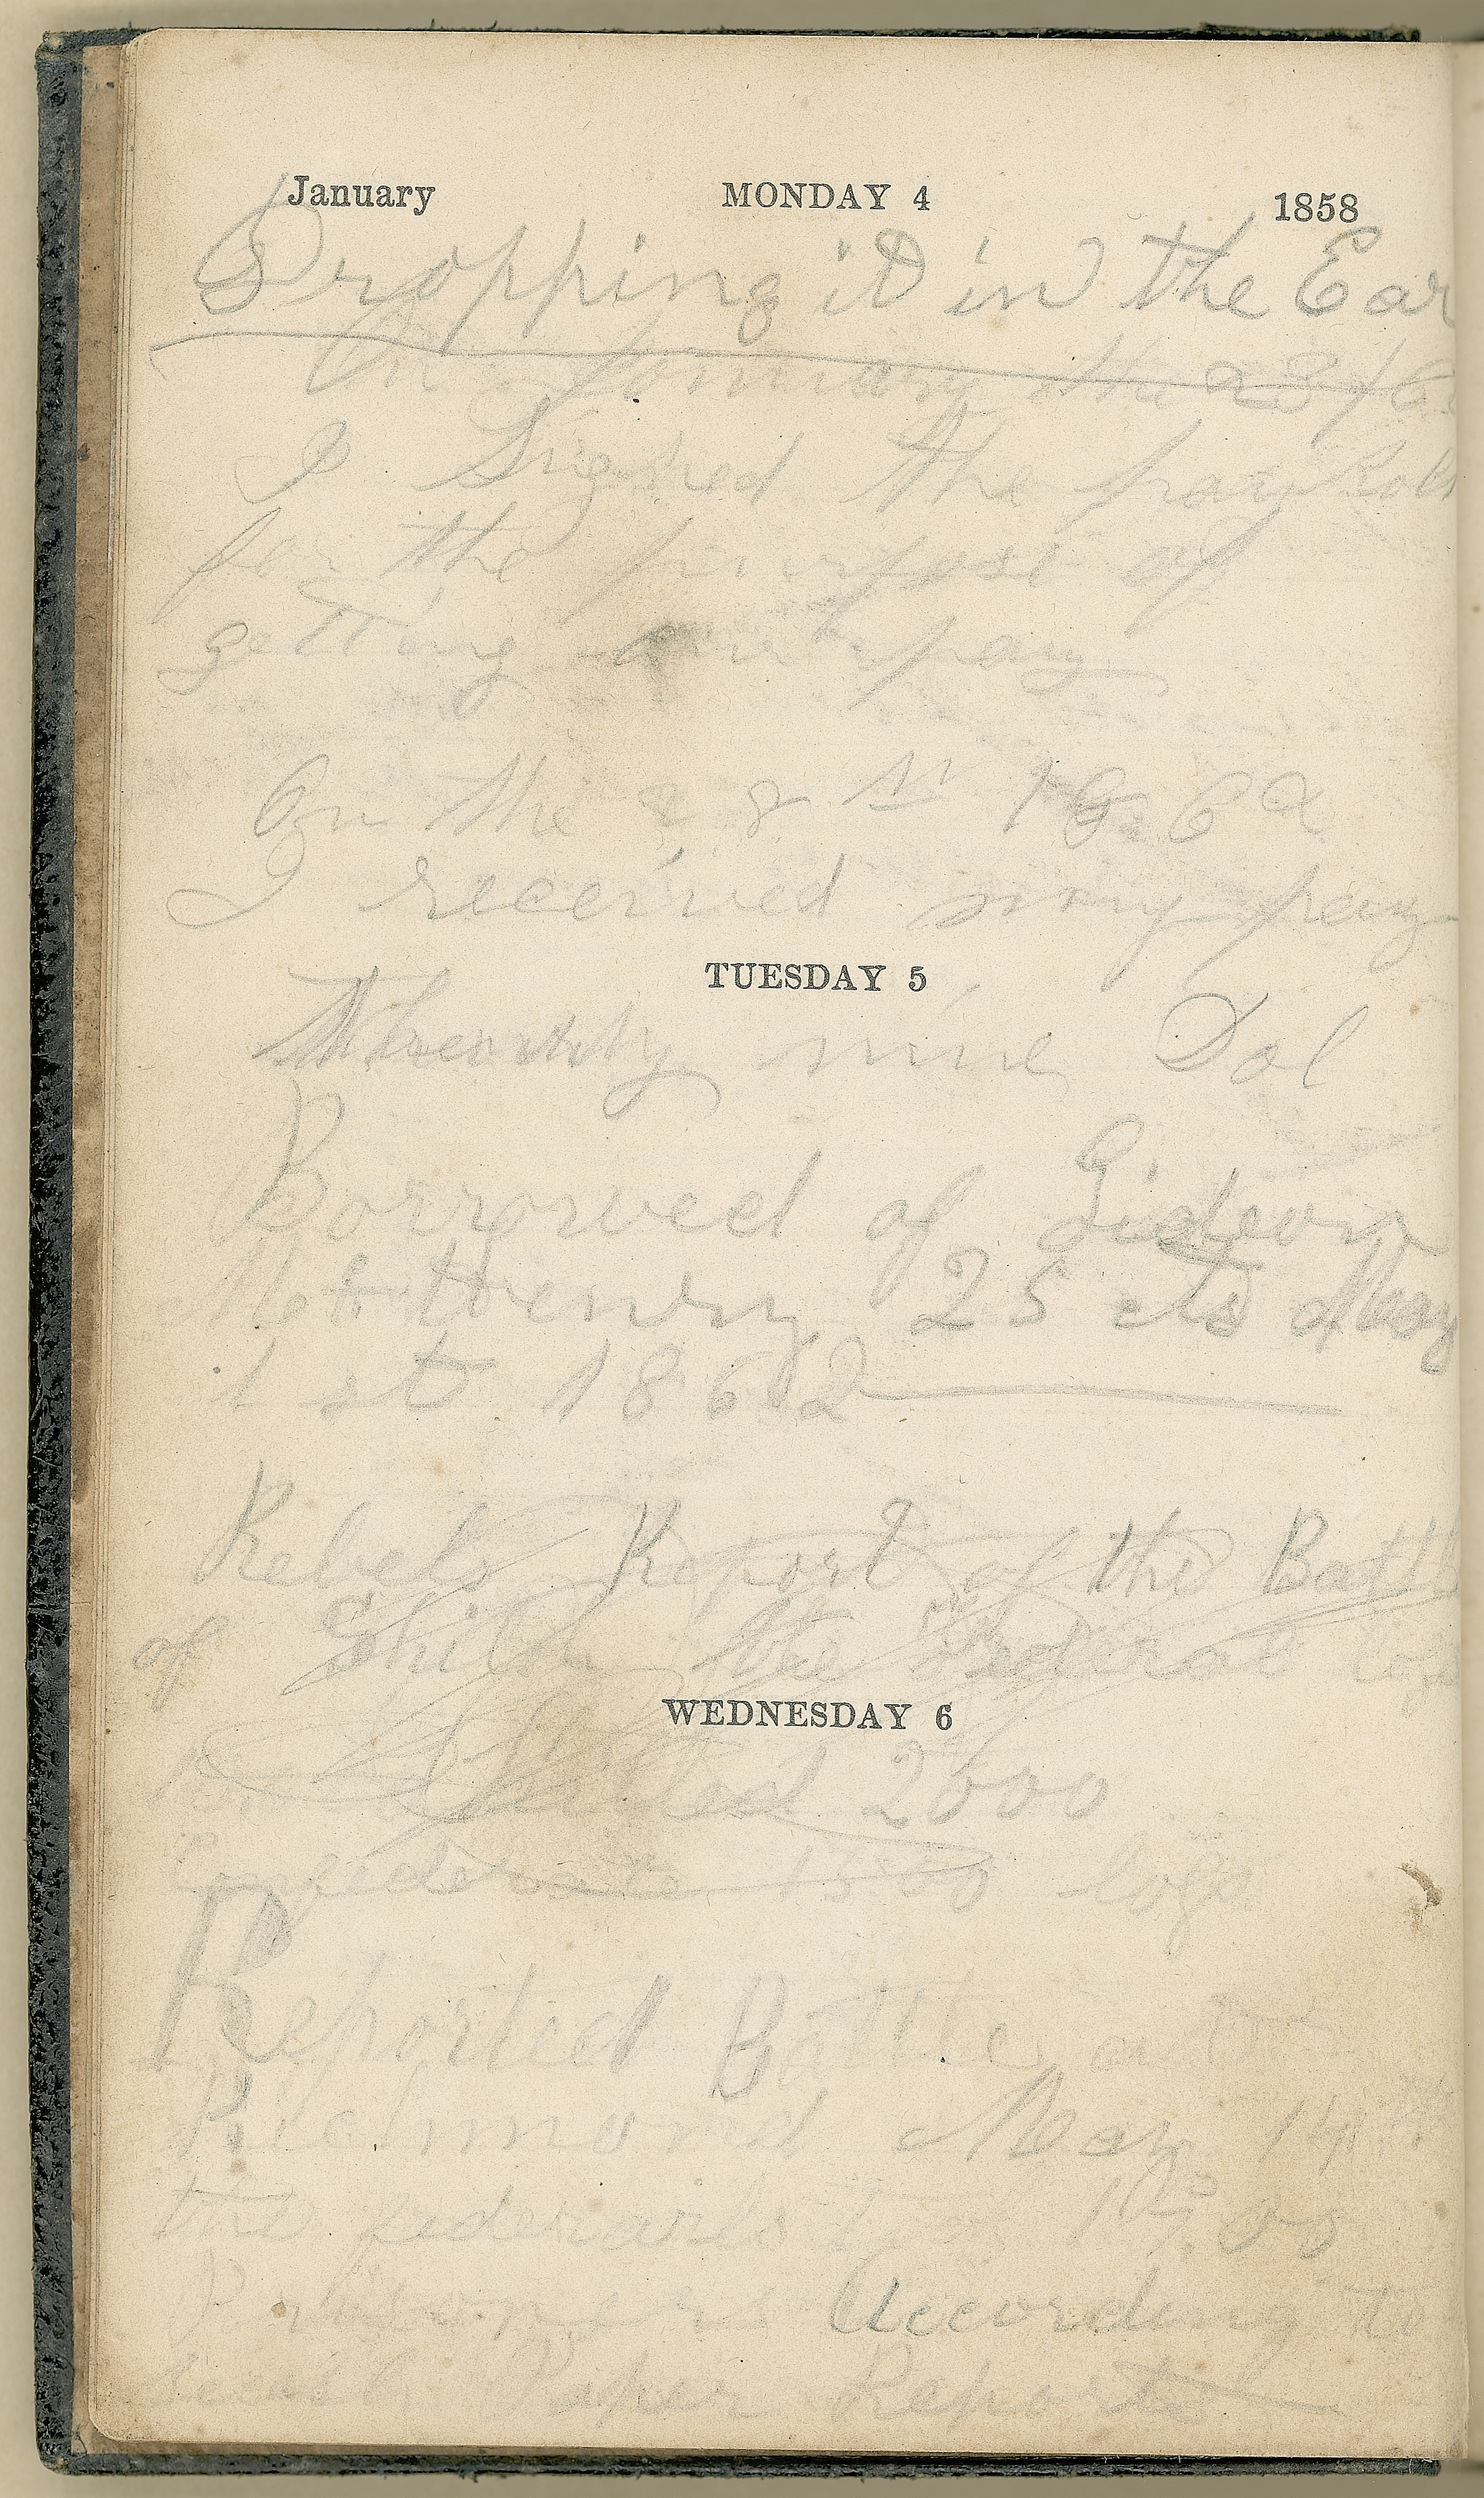 January MONDAY 4 1858
Dropping it in the Ear
On January the 28 / 6
I Signed the pay Rolls
for the purpose of
getting our pay
On the 28 1862
I received my pay
TUESDAY 5
nine Dol
Borrowed of Gideon
McHenry 25 cts May
1 st 1862
Rebels Report of the Battle
of Shiloh the Federal loss
WEDNESDAY 6
Killed 2500
Confederate 1500 loss
Reported Battle at
Richmond May 14
the federals 1000
Prisoners According to
Paper Report